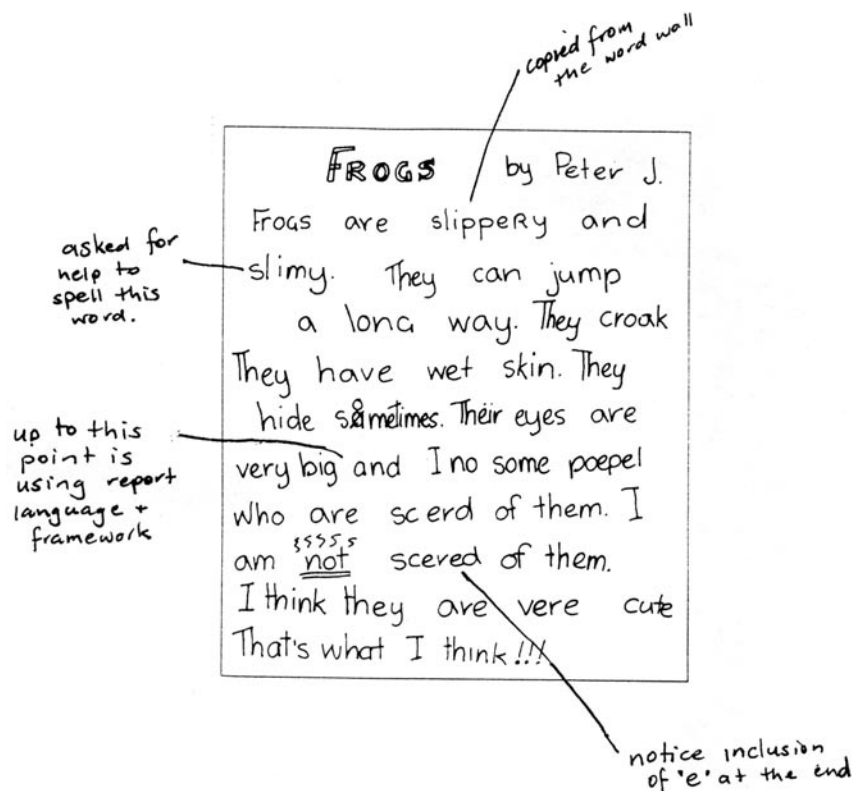 copied from
the word wall
FROGS by Peter J.
FROGS are slippeRy and
slimy. They can jump
a long way. They croak
They have wet skin. They
hide sometimes. Their eyes are
very big and I no some poepel
who are scerd of them. I
am not scered of them.
I think they are vere cute
That's what I think!!!
asked for
help to
spell this
word.
up to this
point is
using report
language +
framework
notice inclusion
of 'e' at the end